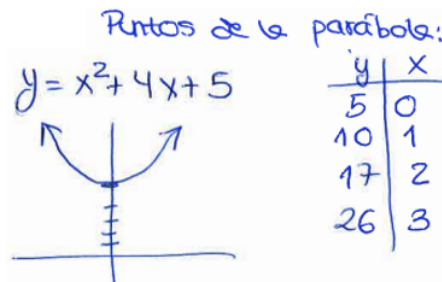 Puntos de la parábola:
y = x² + 4x + 5
y | x
5 | 0
10 | 1
17 | 2
26 | 3